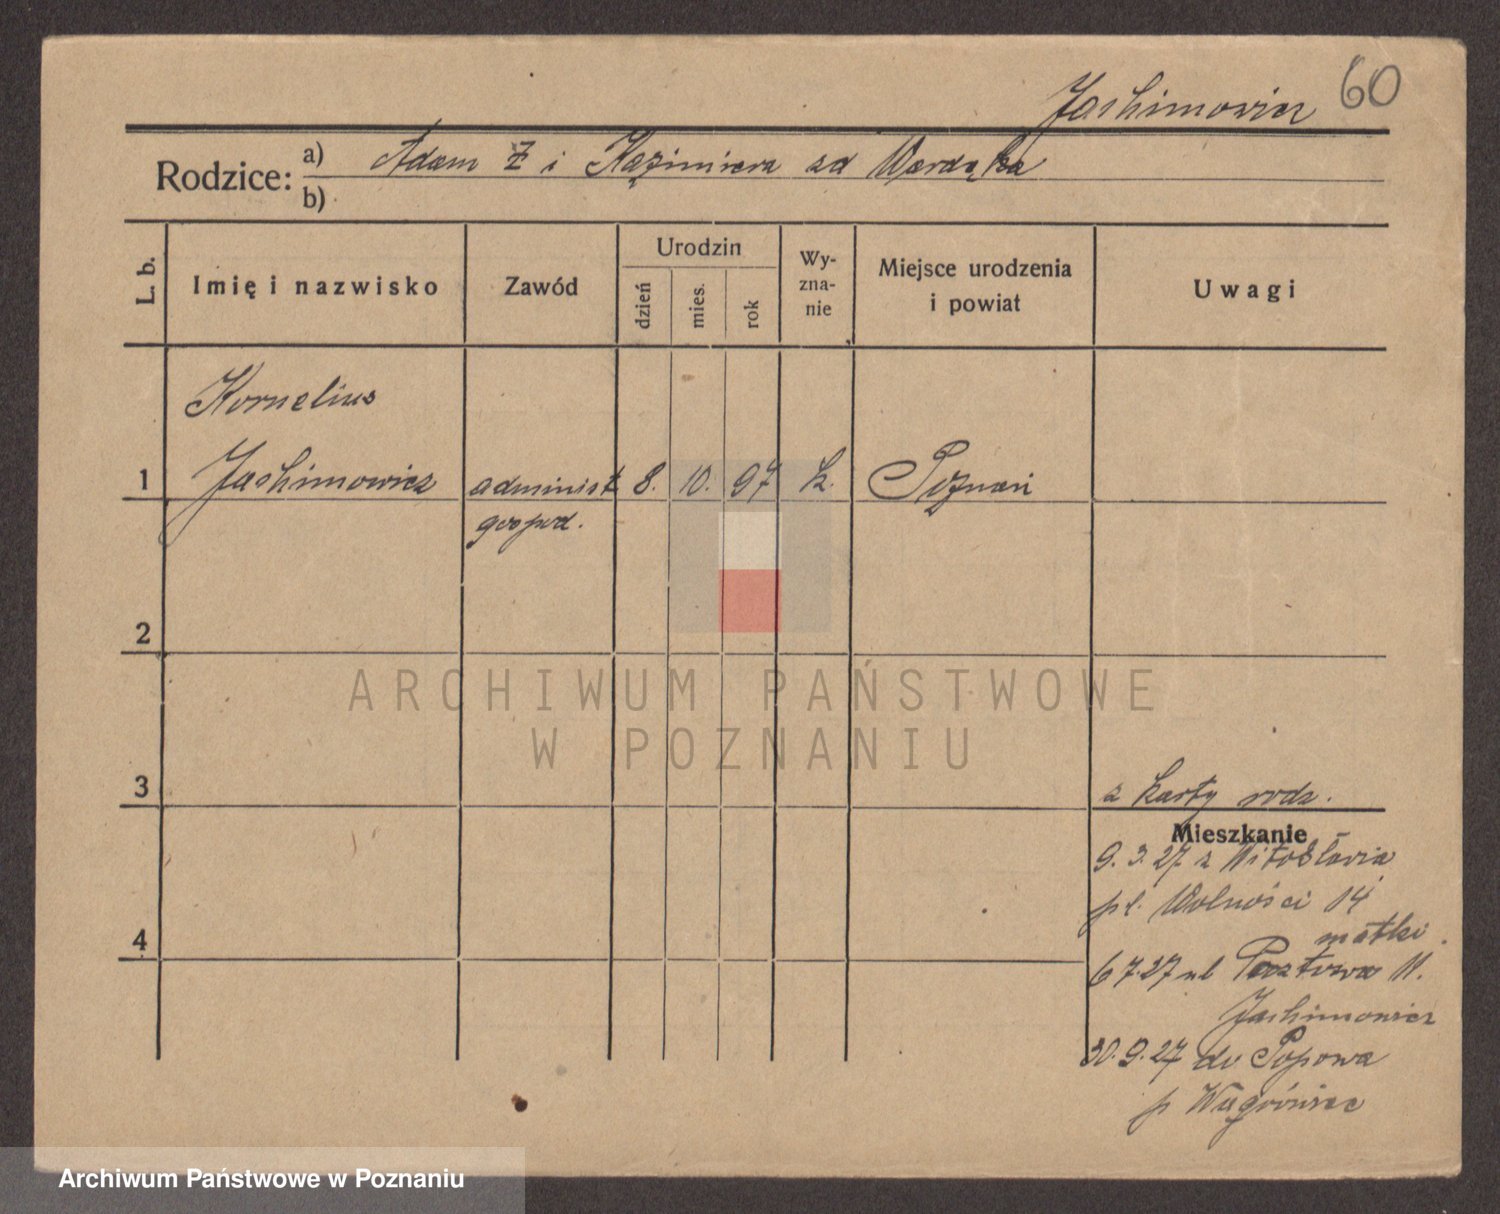 60
Jachimowicz
Rodzice: a) Adam Ż i Kazimiera zd Wardęka
b)
L. b. Imię i nazwisko Zawód Urodzin dzień mies. rok Wy-zna-nie Miejsce urodzenia i powiat Uwagi
Kornelius
1 Jachimowicz administ 8. 10. 97 k. Poznań
gospod.
2
ARCHIWUM PAŃSTWOWE
W POZNANIU
3 z karty rodz.
Mieszkanie
9.3.27 z Witosławia
pl. Wolności 14
4 matki
6 7.27 ul Pocztowa 11.
Jachimowicz
30.9.27 do Popowa
p Wągrówiec
Archiwum Państwowe w Poznaniu